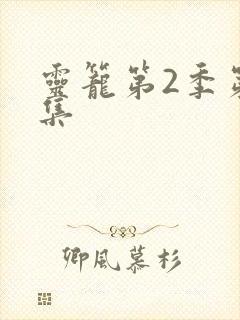 靈籠第2季第
集
卿風慕杉